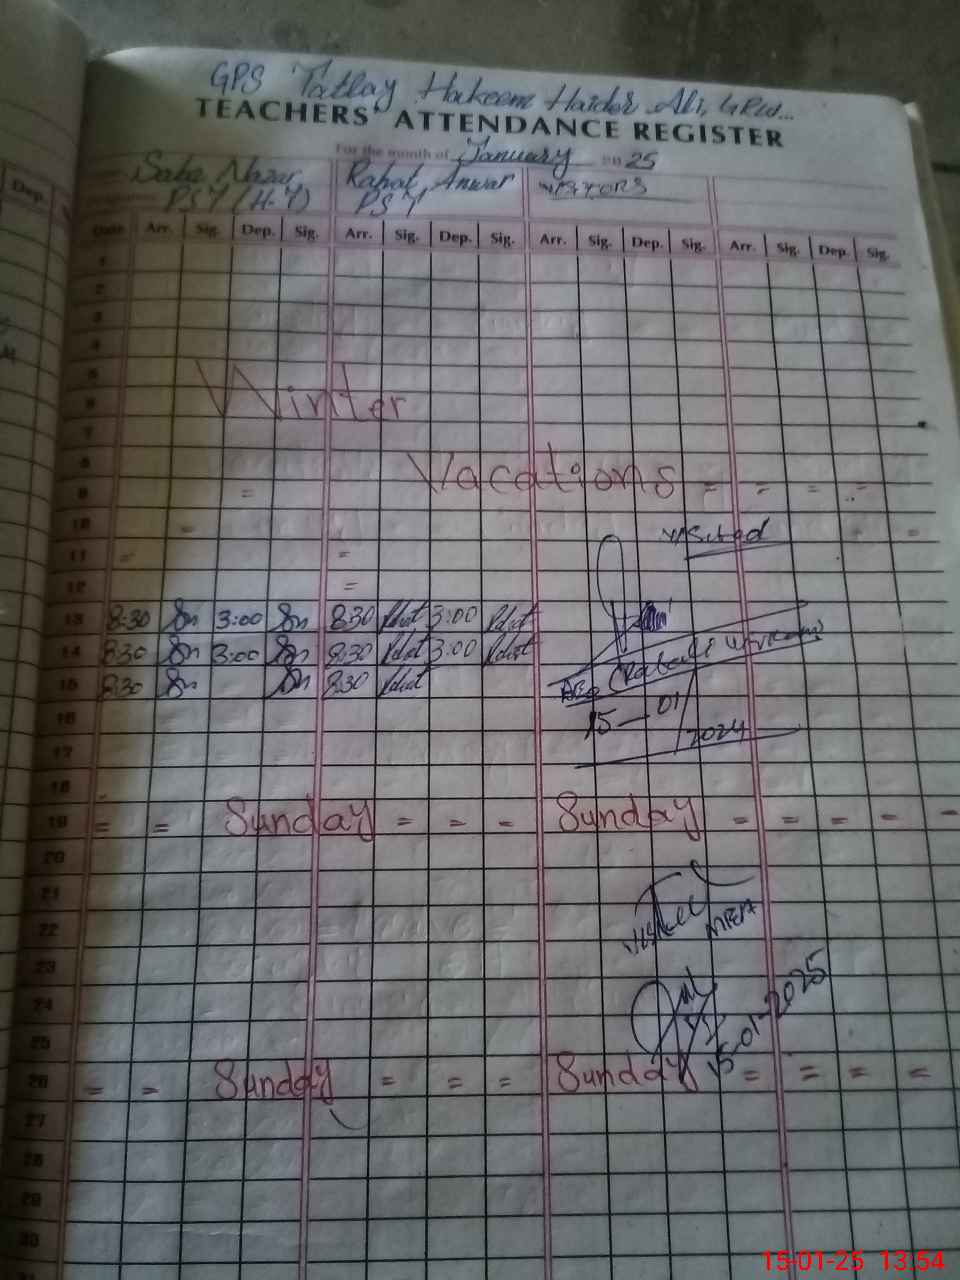 GPS Tatlay Hakeem Haider Ali, GRW...
TEACHERS' ATTENDANCE REGISTER
For the month of January 2025
Saba Nazar Rahat Anwar VISITORS
PST (H.T) PST
Date Arr. Sig. Dep. Sig. Arr. Sig. Dep. Sig. Arr. Sig. Dep. Sig. Arr. Sig. Dep. Sig.
1
2
3
4
5
6 Winter
7
8
9 = Vacations = = = =
10 = Visited = =
11 = =
12 =
13 8:30 3:00 8:30 3:00
14 8:30 3:00 8:30 3:00
15 8:30 8:30
AEO
16 15-01/2024
17
18
19 = = Sunday = = = Sunday = = = = =
20
21
22 Visited MEA
23
24
25 15-01-2025
26 = = Sunday = = = Sunday = = = =
27
28
29
30
15-01-25 13:54